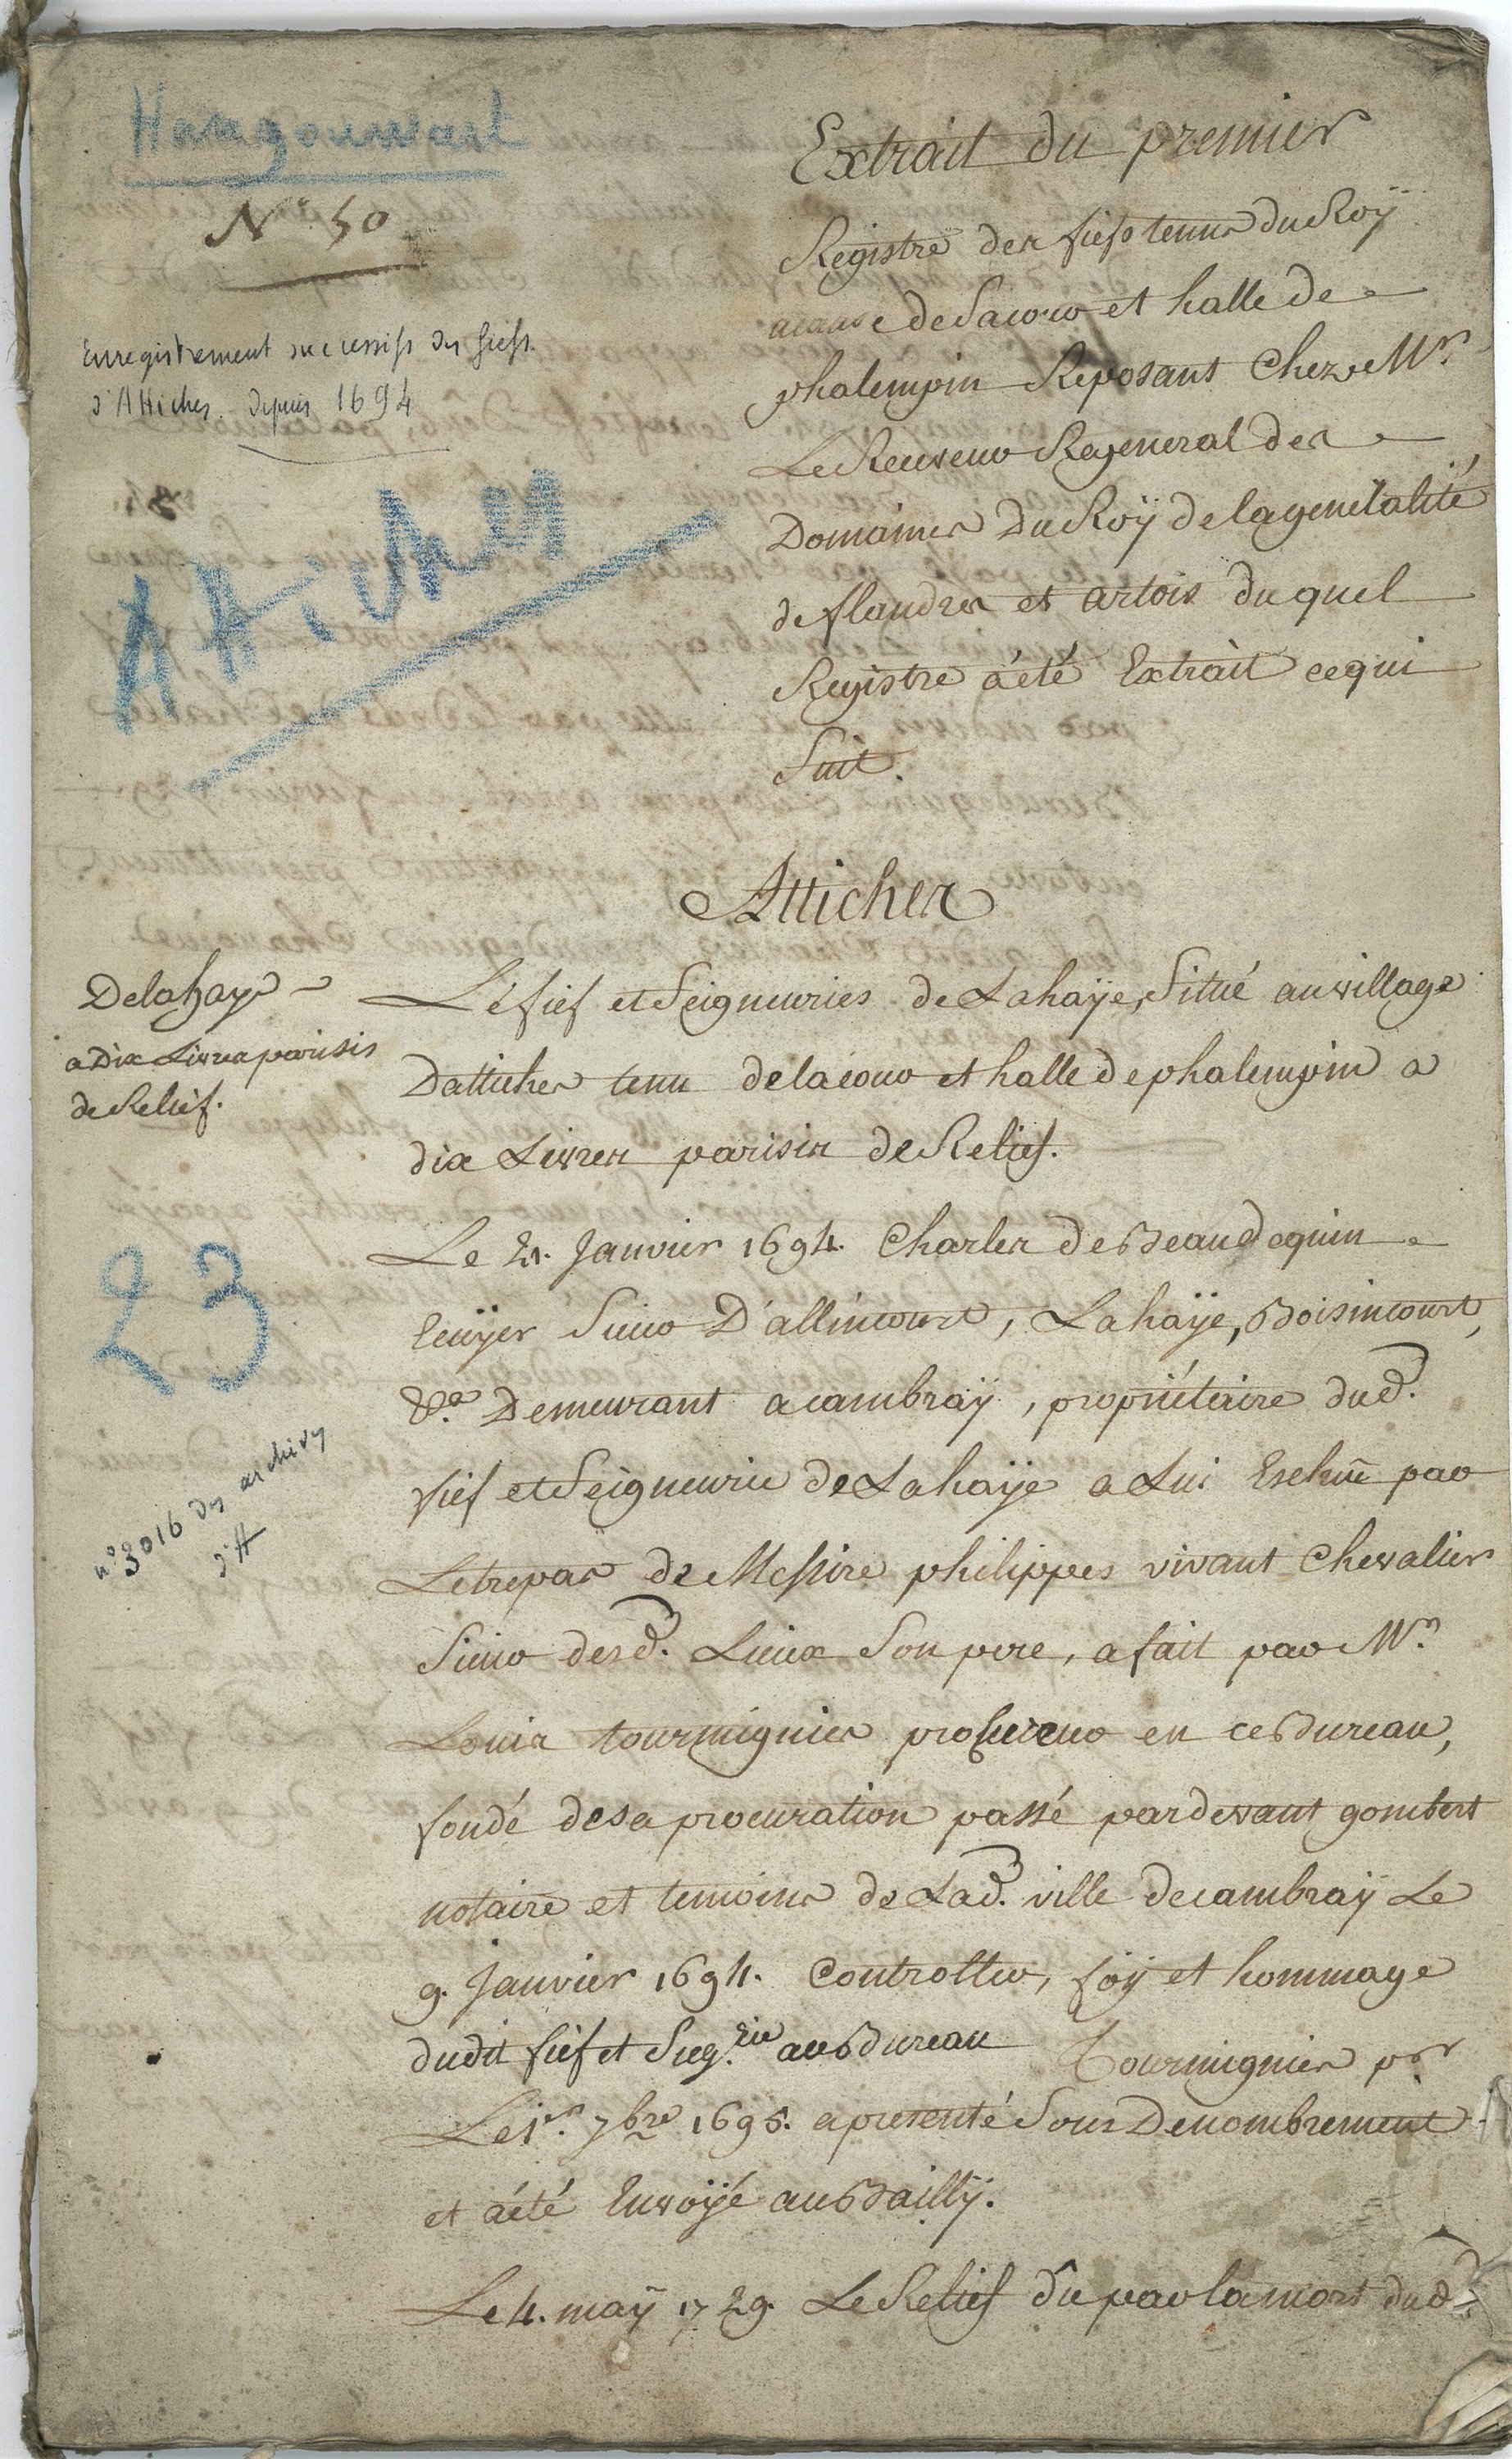 Hangouwart
N° 50
Enregistrement successifs des fiefs
d'Attiches. depuis 1694
Attiches
Extrait du premier
Registre des fiefs tenus du Roÿ
acause de Sa cour et halle de
phalempin Reposant Chez Mr.
Le Receveur General des
Domaines Du Roÿ de la generalité
de flandres et artois duquel
Registre a été Extrait ce qui
Suit.
Attiches
Delahaye
a Dix Livres parisis
de Relief.
Le fief et Seigneuries de Lahaÿe, Situé au village
Dattiches tenu de la cour et halle de phalempin a
dix Livres parisis de Relief.
Le 21. Janvier 1694. Charles de Beaudequin
Ecuÿer Sieur D'allincourt, Lahaÿe, Boisincourt,
&a. Demeurant a cambraÿ, propriétaire dud.
fief et Seigneurie de Lahaÿe a Lui Echue par
Le trepas de Messire philippes vivant Chevalier
Sieur desd. Lieux Son pere, a fait par Mr.
Louis tourmignies procureur en ce Bureau,
fondé de sa procuration passé pardevant gombert
notaire et temoins de Lad. ville de cambraÿ Le
9. Janvier 1694. Controllée, foÿ et hommage
dudit fief et Seig.rie au Bureau Tourmignies pr
Le 1er. 7bre 1695. a presenté Son Denombrement
et a été Envoÿé au Bailly.
Le 4. maÿ 1729. Le Relief dû par la mort dud.
23
n° 3016 des archives
d'A